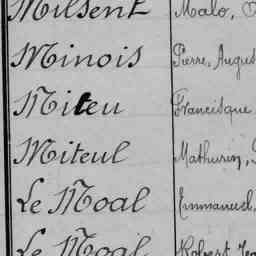 Milsent Malo,
Minois Pierre, Augus
Miteu Francisque
Miteul Mathurin,
Le Moal Emmanuel,
Le Moal Robert Jea